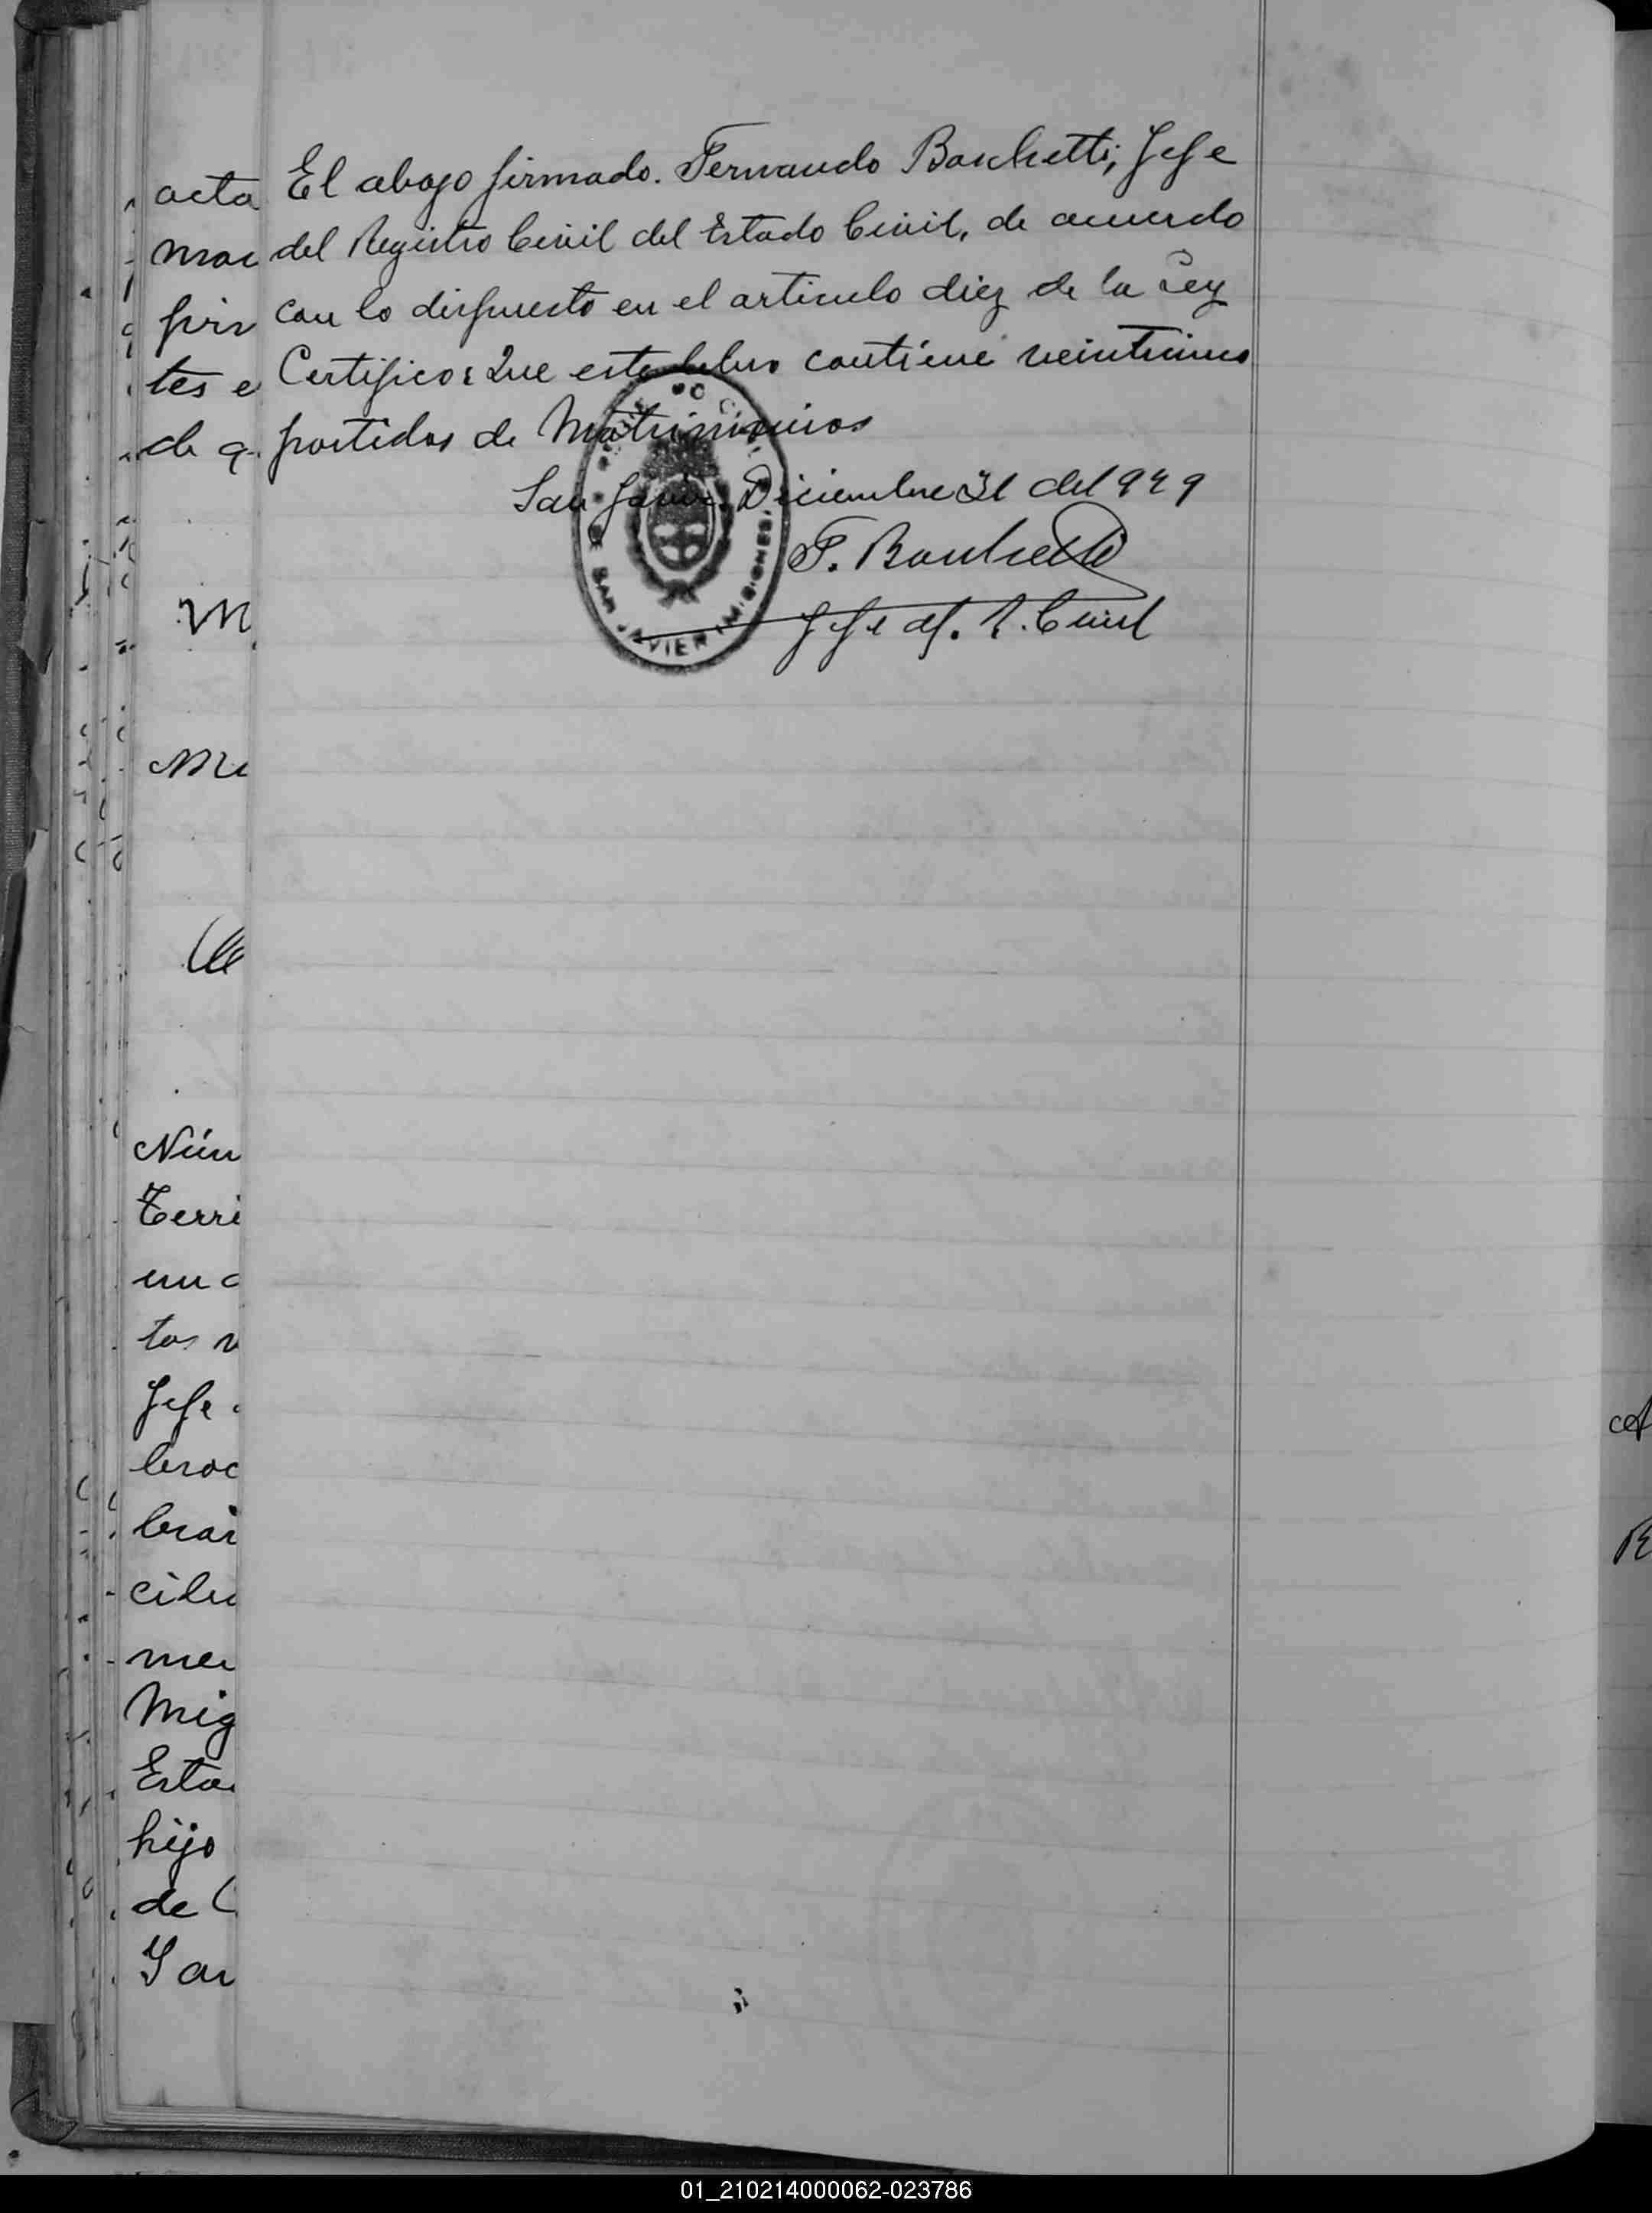 El abajo firmado. Fernando Boschetti, Jefe
del Registro Civil del Estado Civil, de acuerdo
con lo dispuesto en el articulo diez de la Ley
Certifico: Que este libro contiene
partidas de Matrimonios
San Javier Diciembre 31 del 929
F. Boschetti
Jefe del R. Civil
SAN JAVIER (MISIONES)
acta
mar
fir
tes e
de q
M
Mi
Núm
Terri
un a
tos v
Jefe
brar
cili
Mig
Esta
hijo
de C
01_210214000062-023786